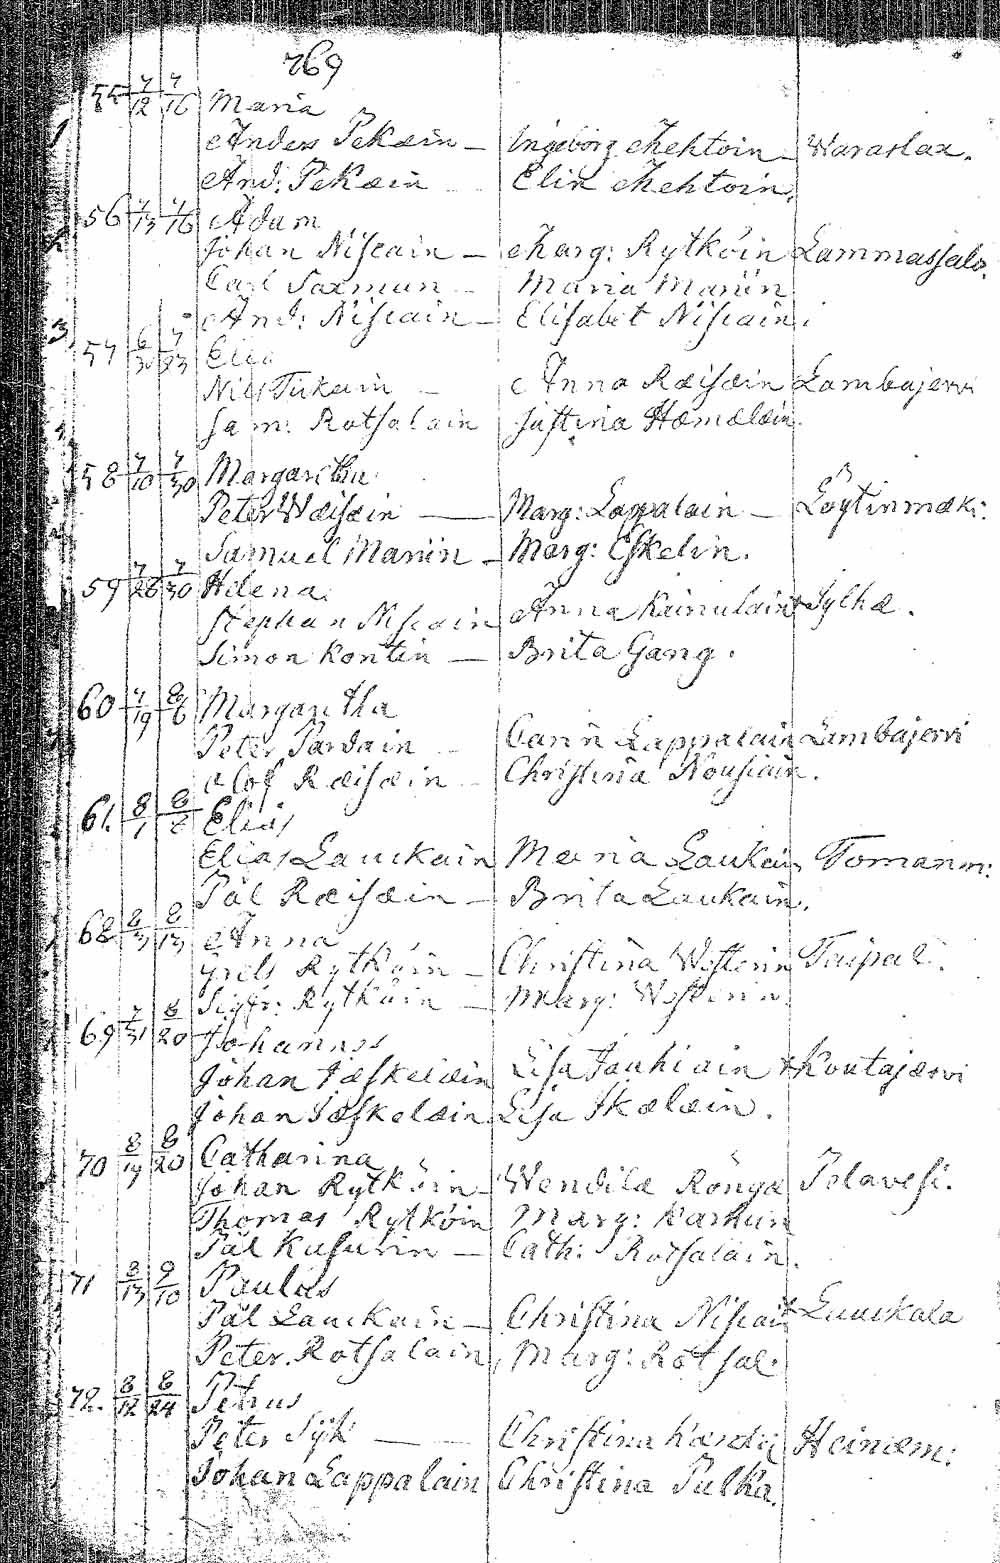 769
55 7/12 7/16 Maria
Anders Pekæin - Ingeborg Mehtoin - Waraslax.
And: Pekæin Elin Mehtoin.
56 7/13 7/16 Adam
Johan Niskain - Marg: Rytköin Lammassalo.
Carl Saxman - Maria Manin
And: Niskain - Elisabet Niskain.
57 6/30 7/23 Elia
Nils Tukain - Anna Ræisæin Lambajerwi
Sam: Rotsalain Justina Hæmælæin.
58 7/10 7/30 Margaretha
Peter Wæisæin - Marg: Lappalain - Löytinmæki:
Samuel Manin - Marg: Eskelin.
59 7/26 7/30 Helena.
Stephan Niskain Anna Kainulain Sylhæ.
Simon Kontin - Brita Gang.
60 7/19 8/6 Margaretha
Peter Pardain - Carin Lappalain Lambajerwi
Olof Ræisæin - Christina Nousiain.
61. 8/1 8/6 Elias
Elias Lauckain Maria Laukain Tomanm:
Pål Ræisæin - Brita Laukain.
68 8/3 8/13 Anna
Grels Rytköin - Christina Westerin Taipal.
Sigfr: Rytköin - Marg: Westerin.
69 7/31 8/20 Johannes
Johan Jæskelæin Lisa Jauhiain Koutajærvi
Johan Jæskelæin Lisa Ikælæin.
70 8/19 8/20 Catharina
Johan Rytköin - Wendila Rönga Pelavesi.
Thomas Rytköin Marg: Karhun
Pål Kususin - Cath: Rotsalain.
71 8/13 9/10 Paulus
Pål Lauckain - Christina Niskain Lauckala
Peter Rotsalain, Marg: Rotsal.
72. 8/12 8/24 Petrus
Peter Sÿk - Christina Heinæm:
Johan Lappalain Christina Pulka.